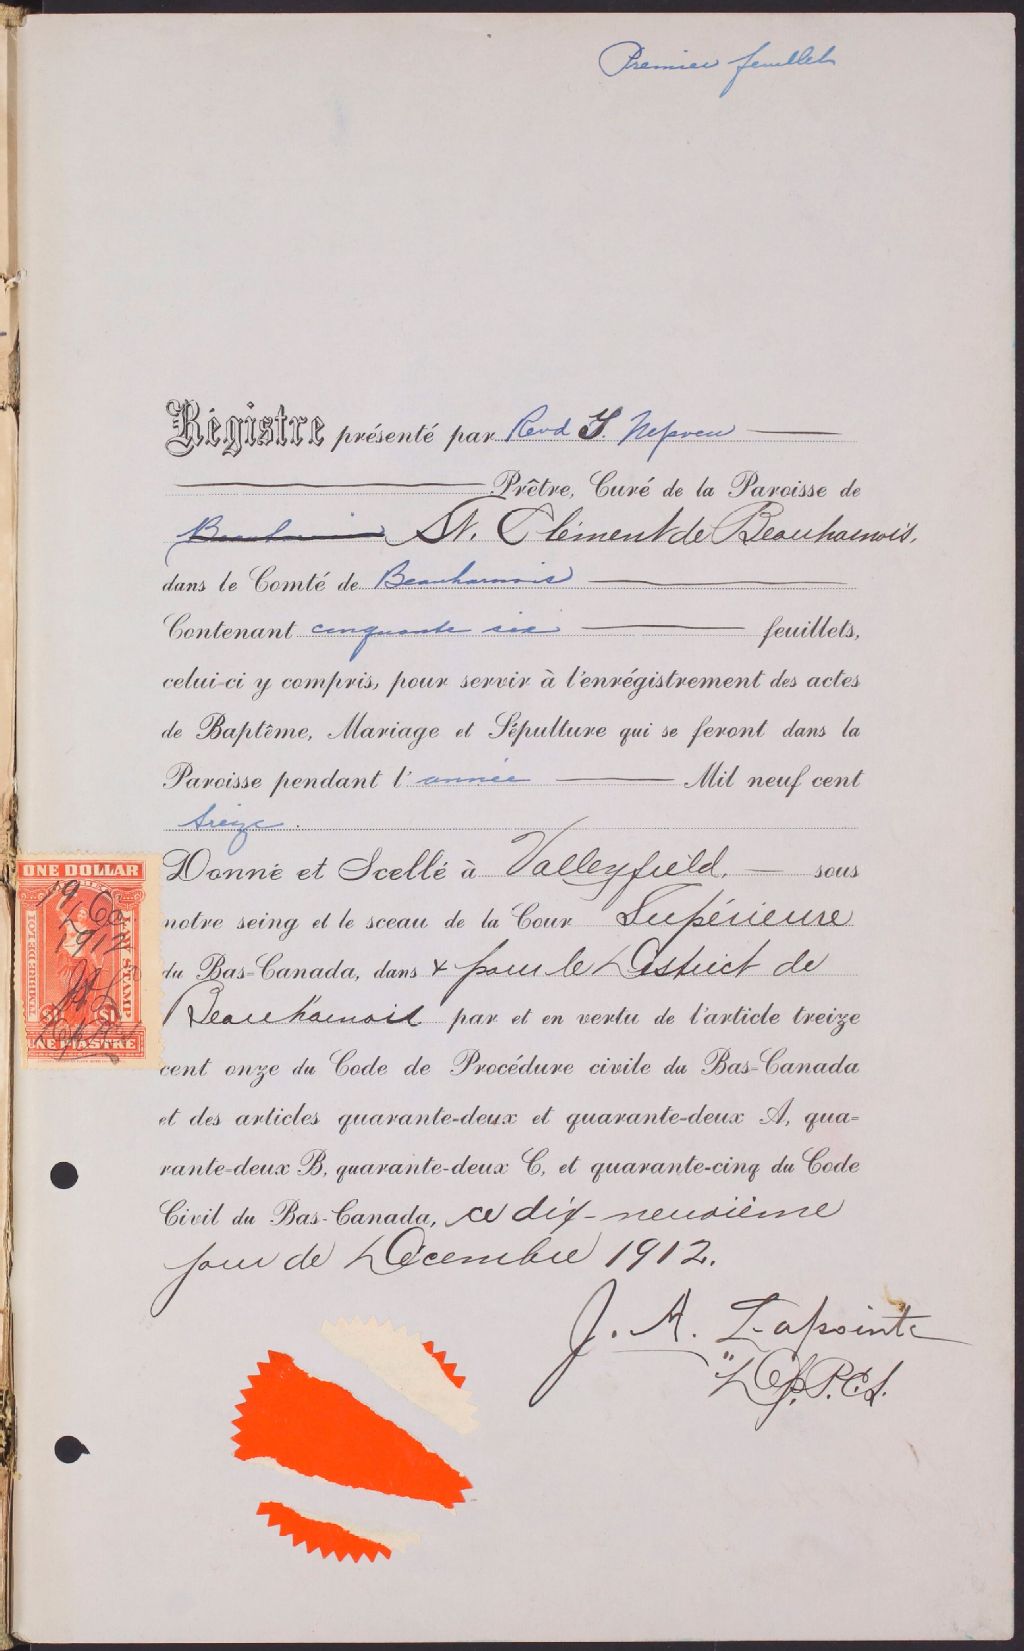 Premier feuillet
Régistre présenté par Revd J. Nepveu
Prêtre, Curé de la Paroisse de
Beauharnois St. Clément de Beauharnois,
dans le Comté de Beauharnois
Contenant cinquante six feuillets,
celui-ci y compris, pour servir à l'enrégistrement des actes
de Baptême, Mariage et Sépulture qui se feront dans la
Paroisse pendant l'année Mil neuf cent
treize.
Donné et Scellé à Valleyfield. sous
notre seing et le sceau de la Cour Supérieure
du Bas-Canada, dans & pour le District de
Beauharnois par et en vertu de l'article treize
cent onze du Code de Procédure civile du Bas-Canada
et des articles quarante-deux et quarante-deux A, qua=
rante=deux B, quarante-deux C, et quarante-cinq du Code
Civil du Bas-Canada, ce dix-neuvième
jour de Décembre 1912.
J. A. Lapointe
Dep. P.C.S.
ONE DOLLAR
TIMBRE DE LOI
LAW STAMP
19
1912
$1 $1
UNE PIASTRE